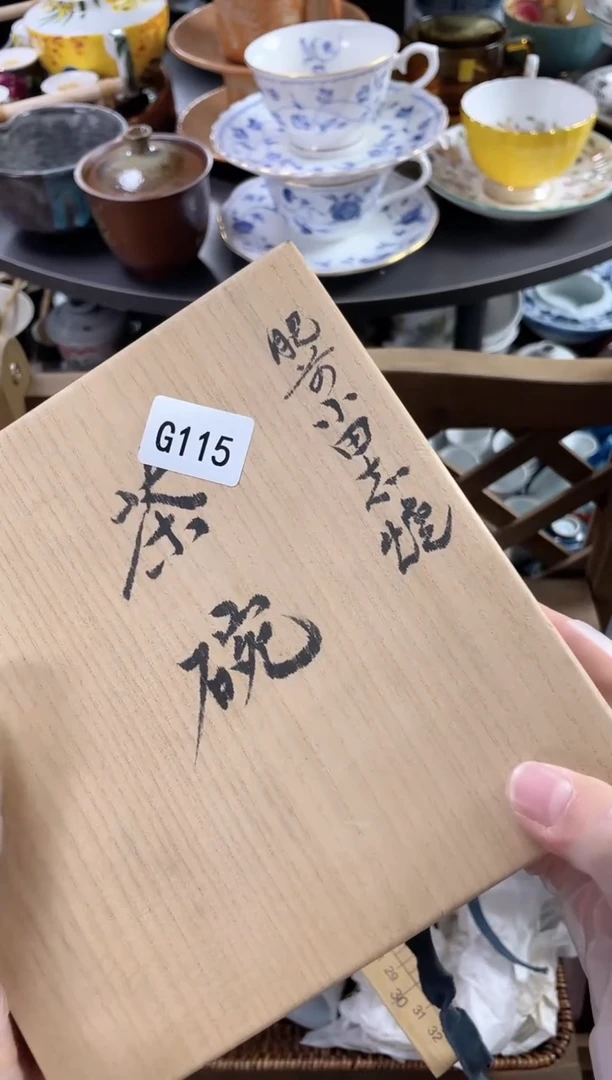 肥前小田志焼
茶碗
G115
29
30
31
32